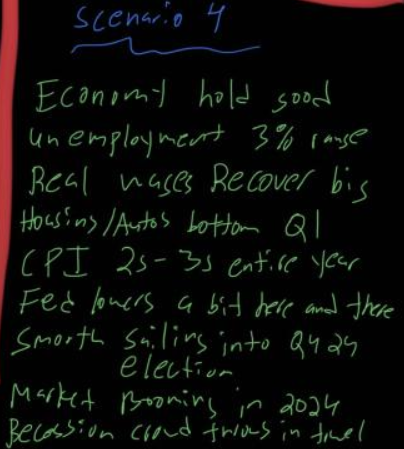 Scenario 4
Economy hold good
unemployment 3% range
Real wages Recover big
Housing/Autos bottom Q1
CPI 2s-3s entire year
Fed lowers a bit here and there
Smooth sailing into Q4 24
election
Market Booming in 2024
Recession crowd throws in towel